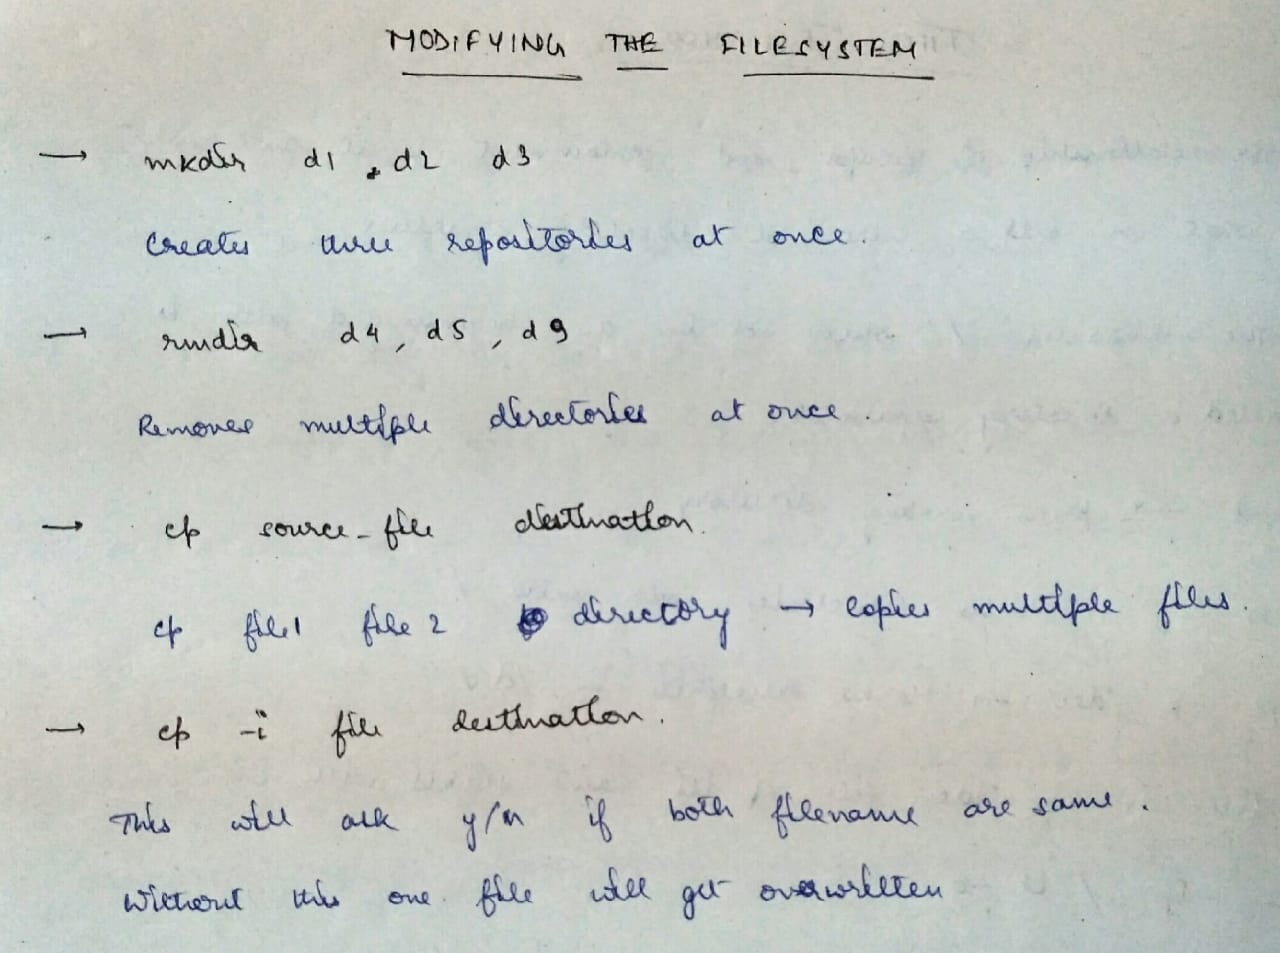 MODIFYING THE FILESYSTEM
→ mkdir d1 d2 d3
Creates three repositories at once.
→ rmdir d4, d5, d9
Removes multiple directories at once.
→ cp source-file destination.
cp file1 file 2 directory → Copies multiple files.
→ cp -i file destination.
This will ask y/n if both filename are same.
Without this one file will get overwritten